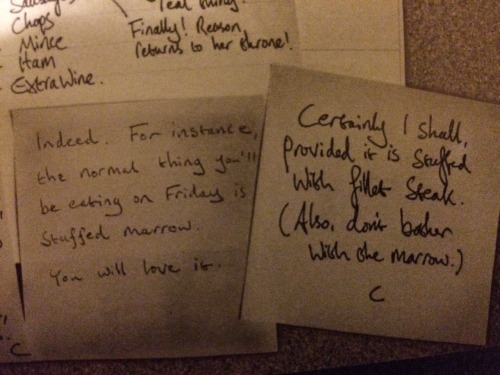 Sausages
Chops
Mince
Ham
Extra Wine.
"real things".
Finally! Reason
returns to her throne!
Indeed. For instance,
the normal thing you'll
be eating on Friday is
stuffed marrow.
You will love it.
C
Certainly I shall,
provided it is stuffed
with fillet steak.
(Also, don't bother
with the marrow.)
C